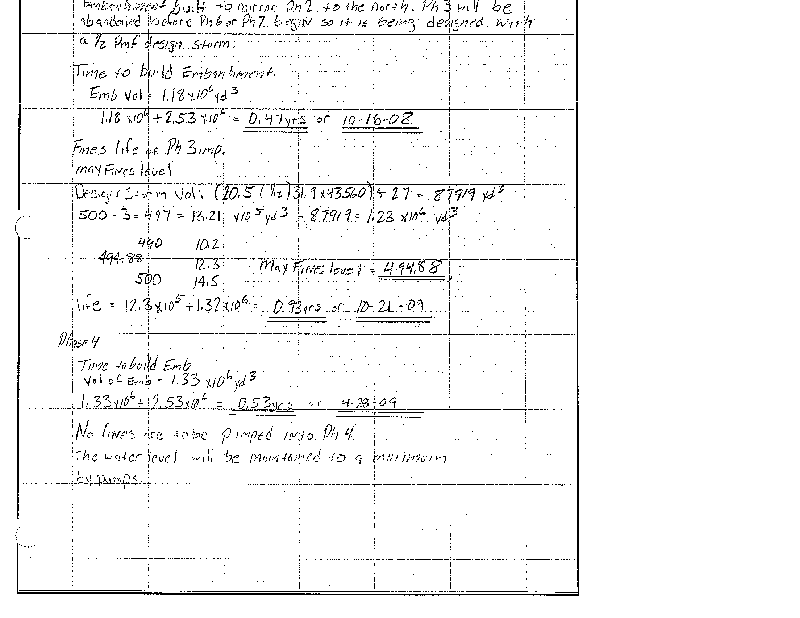 Embankment built to mirror Ph 2. to the north. Ph 3 will be
abandoned before Ph 6 or Ph 7. begin so it is being designed with
a 1/2 PMF design storm.
Time to build Embankment.
Emb Vol = 1.18x10⁶ yd³
1.18 x10⁶ ÷ 2.53 x10⁶ = 0.47yrs or 10-16-08
Fines life of Ph 3 imp.
max Fines level
Design Storm Vol: (20.5 (/12)31.9x43560) ÷ 27 = 87919 yd³
500 - 3 = 497 = 13.21 x10⁵ yd³ - 87919 = 1.23 x10⁶ yd³
490 10.2
494.88 12.3 Max Fines level = 494.88
500 14.5
life = 12.3x10⁵ ÷ 1.32x10⁶ = 0.93yrs or 10-21-09
Phase 4
Time to build Emb
Vol of Emb = 1.33 x10⁶ yd³
1.33x10⁶ ÷ 2.53x10⁶ = 0.53yrs or 4-28-09
No fines are to be pumped into Ph 4.
The water level will be maintained to a minimum
by pumps.